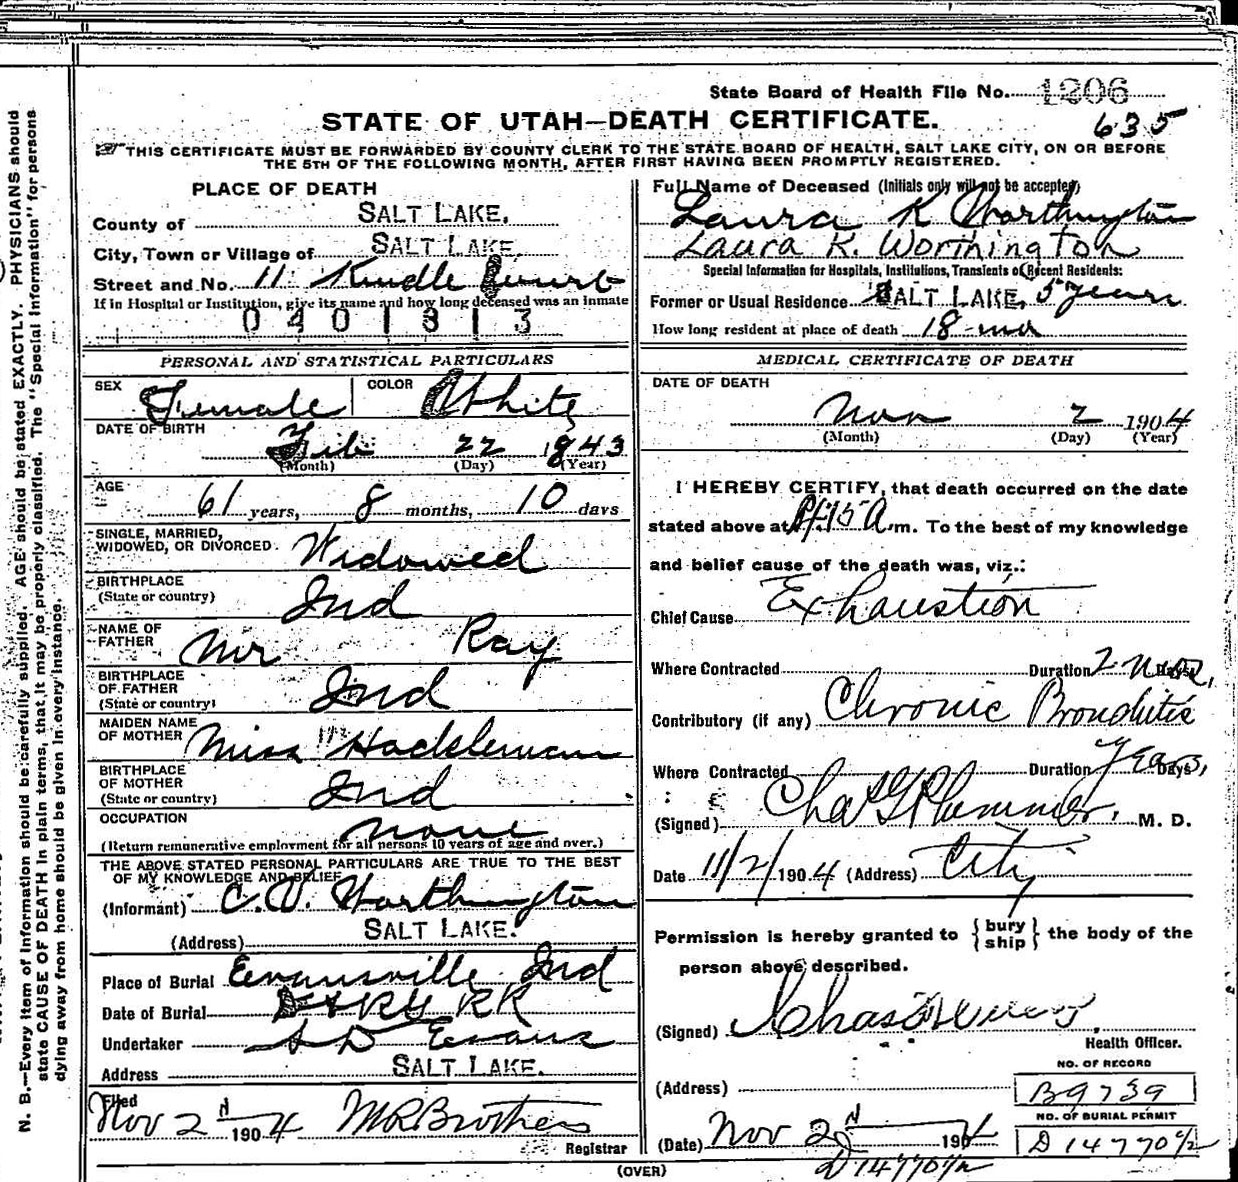 State Board of Health File No. 1206
635
STATE OF UTAH—DEATH CERTIFICATE.
THIS CERTIFICATE MUST BE FORWARDED BY COUNTY CLERK TO THE STATE BOARD OF HEALTH, SALT LAKE CITY, ON OR BEFORE
THE 5TH OF THE FOLLOWING MONTH, AFTER FIRST HAVING BEEN PROMPTLY REGISTERED.
PLACE OF DEATH
County of SALT LAKE.
City, Town or Village of SALT LAKE.
Street and No. 11 Kendle Court
If in Hospital or Institution, give its name and how long deceased was an inmate
0401313
Full Name of Deceased (Initials only will not be accepted)
Laura K Worthington
Laura K. Worthington
Special Information for Hospitals, Institutions, Transients or Recent Residents:
Former or Usual Residence SALT LAKE, 5 years
How long resident at place of death 18 mo
PERSONAL AND STATISTICAL PARTICULARS
SEX Female COLOR White
DATE OF BIRTH
Feb 22 1843
(Month) (Day) (Year)
AGE
61 years, 8 months, 10 days
SINGLE, MARRIED,
WIDOWED, OR DIVORCED. Widowed
BIRTHPLACE
(State or country) Ind
NAME OF
FATHER Mr Ray
BIRTHPLACE
OF FATHER
(State or country) Ind
MAIDEN NAME
OF MOTHER Miss Hackleman
BIRTHPLACE
OF MOTHER
(State or country) Ind
OCCUPATION none
(Return remunerative employment for all persons 10 years of age and over.)
THE ABOVE STATED PERSONAL PARTICULARS ARE TRUE TO THE BEST
OF MY KNOWLEDGE AND BELIEF
(Informant) C. V. Worthington
(Address) SALT LAKE.
Place of Burial Evansville Ind
Date of Burial RR
Undertaker S D Evans
Address SALT LAKE.
Filed
Nov 2 1904 M R Brothers
Registrar
MEDICAL CERTIFICATE OF DEATH
DATE OF DEATH
Nov 2 1904
(Month) (Day) (Year)
I HEREBY CERTIFY, that death occurred on the date
stated above at A.m. To the best of my knowledge
and belief cause of the death was, viz.:
Chief Cause Exhaustion
Where Contracted Duration 2 Days
Contributory (if any) Chronic Bronchitis
Where Contracted Duration Years, Days
(Signed) Chas G Plummer, M. D.
Date 11/2/1904 (Address) City
Permission is hereby granted to { bury ship } the body of the
person above described.
(Signed) Chas
Health Officer.
(Address)
NO. OF RECORD
B9739
NO. OF BURIAL PERMIT
D 14770 1/2
(Date) Nov 2d 1904
D 14770 1/2
(OVER)
N. B.—Every item of information should be carefully supplied. AGE should be stated EXACTLY. PHYSICIANS should
state CAUSE OF DEATH in plain terms, that it may be properly classified. The "Special Information" for persons
dying away from home should be given in every instance.